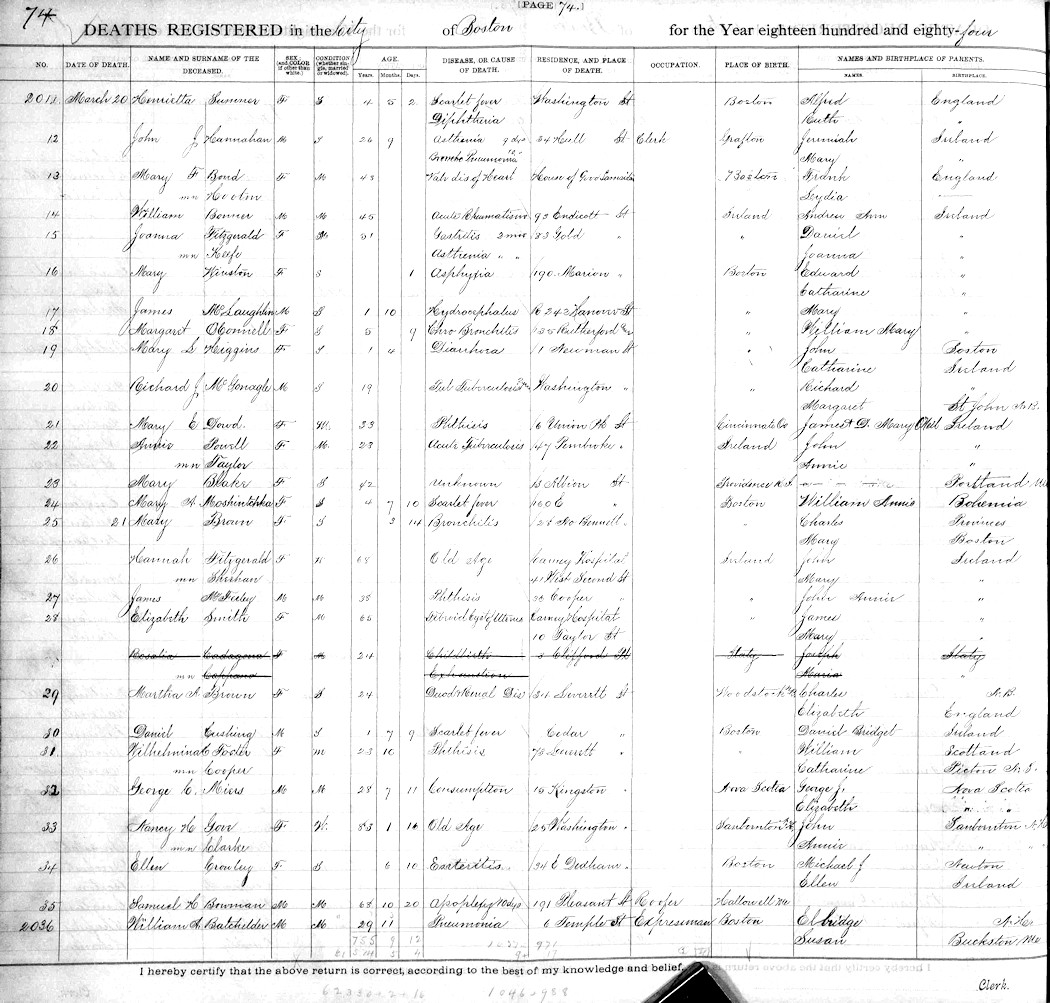 74
[PAGE 74.]
DEATHS REGISTERED in the City of Boston for the Year eighteen hundred and eighty-four
NO. DATE OF DEATH. NAME AND SURNAME OF THE DECEASED. SEX (and COLOR if other than white.) CONDITION (whether single, married or widowed). AGE. Years. Months. Days. DISEASE, OR CAUSE OF DEATH. RESIDENCE, AND PLACE OF DEATH. OCCUPATION. PLACE OF BIRTH. NAMES AND BIRTHPLACE OF PARENTS. NAMES. BIRTHPLACE.
March 20 Henrietta Sumner F S 4 5 2 Scarlet fever Washington St Boston Alfred England
Diphtheria Ruth "
12 John J Hannahan M S 26 9 Asthenia St Clerk Grafton Jeremiah Ireland
Pneumonia Mary "
13 Mary F Bond F M 43 Valv dis of Heart House of Good Samaritan Boston Frank England
mn Lydia
14 William Bonner M M 45 Acute Rheumatism 93 Endicott St Ireland Andrew Ann Ireland
15 Joanna Fitzgerald F Gastritis 83 Gold " " Daniel "
mn Keefe Asthenia " " Joanna "
16 Mary F S 1 Asphyxia 190 Marion " Boston Edward "
Catharine "
17 James McLaughlin M S 1 10 Hydrocephalus 242 Hanover St " Mary "
18 Margaret OConnell F S 9 Chro Bronchitis 135 Rutherford Av " William Mary "
19 Mary L Higgins F S 1 4 Diarrhœa 1 Newman St " John Boston
Catharine Ireland
20 Richard J McGonagle M S 19 Tuberculosis Washington " " Richard "
Margaret St John N.B.
21 Mary E Dowd F 33 Phthisis 6 Union Pk St Cincinnati O James D. Mary Ireland
22 Annie Powell F M 23 Acute Tuberculosis 47 Pembroke " Ireland John "
mn Taylor Annie "
23 Mary F S 42 Unknown Albion St Providence R.I. Portland Me
24 Mary A Moshintchka F S 4 7 10 Scarlet fever 160 E " Boston William Annie Bohemia
25 21 Mary F S 3 14 Bronchitis 28 No Bennett " Charles Provinces
Mary Boston
26 Hannah Fitzgerald F W 68 Old Age Carney Hospital Ireland John Ireland
mn 41 West Second St Mary "
27 James M M 38 Phthisis Cooper " " John Annie "
28 Elizabeth Smith F M 65 Fibroid Cyst of Uterus Carney Hospital " James "
10 Taylor St Mary "
Rosalia Cadagona F M 24 Childbirth 3 Clifford St Italy Joseph Italy
mn Exhaustion Maria
29 Martha A Brown F S 24 34 Leverett St Charles N.B.
Elizabeth England
30 Daniel Cushing M S 1 7 9 Scarlet fever Cedar " Boston Daniel Bridget Ireland
31 Wilhelmina C Foster F M 23 10 Phthisis 73 Leverett " " William Scotland
mn Cooper Catharine Pictou N.S.
32 George C. Miers M M 28 7 11 Consumption Kingston " Nova Scotia George J. Nova Scotia
Elizabeth " "
33 Nancy H Gow F W. 83 1 16 Old Age 25 Washington " Sanbornton N.H. John Sanbornton N.H.
mn Clarke Annie " "
34 Ellen Crowley F S 6 10 Enteritis 34 E Dedham " Boston Michael J Newton
Ellen Ireland
35 Samuel H Bowman M M 68 10 20 Apoplexy 191 Pleasant St Cooper Hallowell Me
2036 William A. Batchelder M M 29 11 Pneumonia 6 Temple St Expressman Boston Elbridge N.H.
Susan Me
755 9 12
I hereby certify that the above return is correct, according to the best of my knowledge and belief.
Clerk.